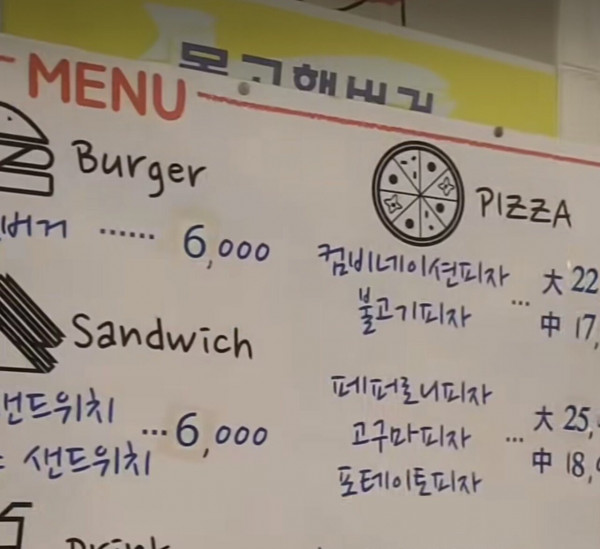 몽고햄버거
MENU
Burger
버거 ...... 6,000
Sandwich
샌드위치
샌드위치
...6,000
PIZZA
컴비네이션피자
불고기피자
... 大 22
中 17,
페퍼로니피자
고구마피자
포테이토피자
... 大 25,
中 18,
Drink